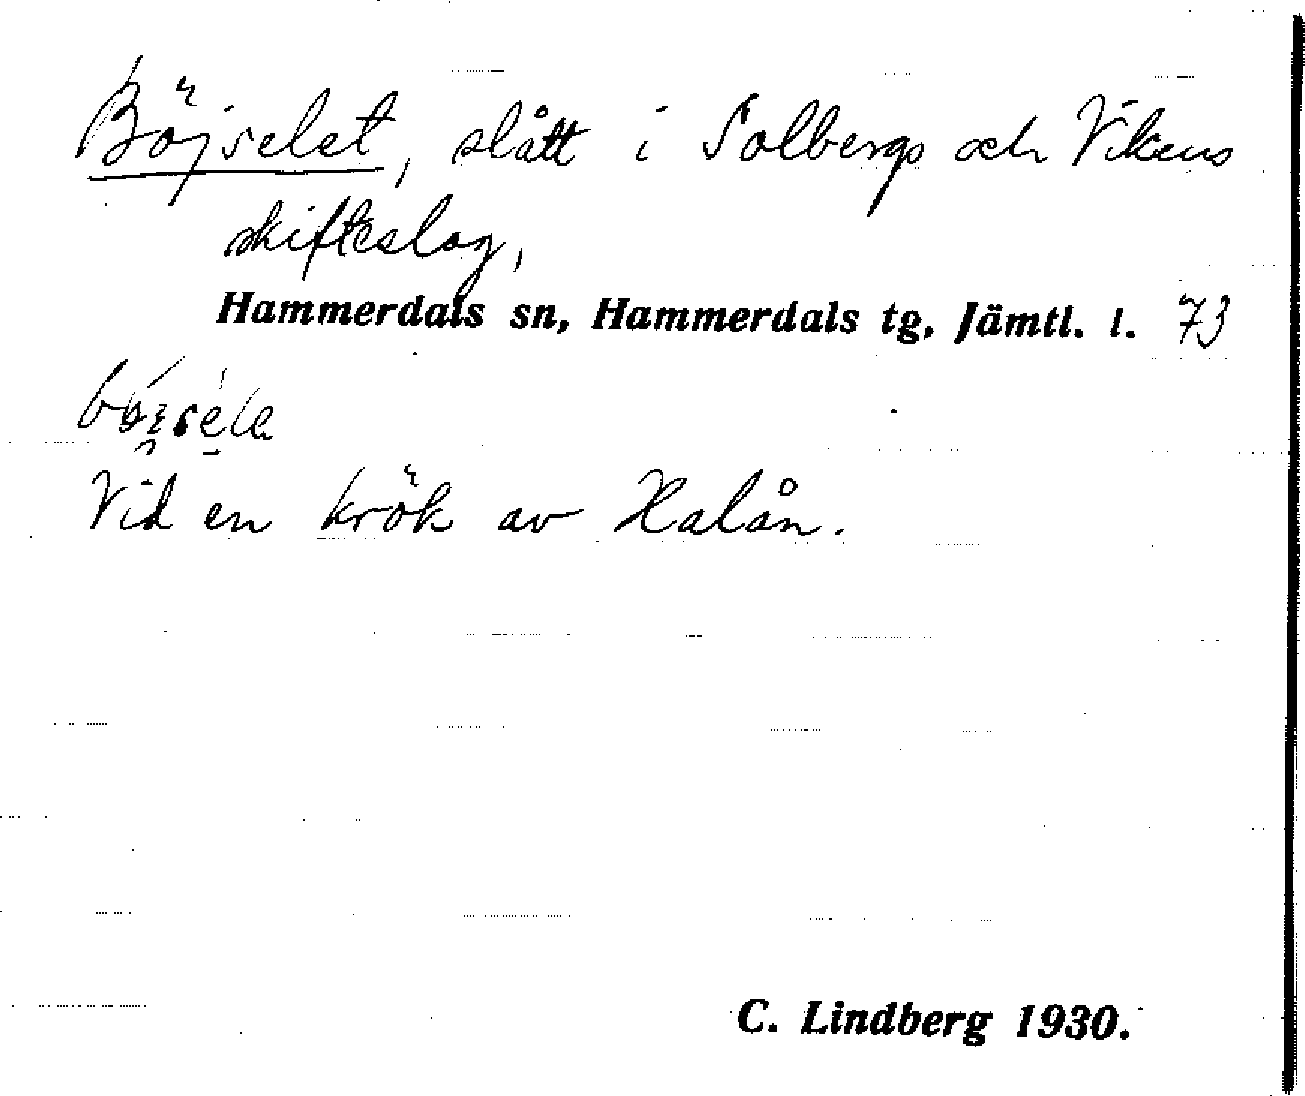 Böjselet, slått i Solbergs och Vikens
skifteslag,
Hammerdals sn, Hammerdals tg, Jämtl. l. 73
Vid en krök av Xalån.
C. Lindberg 1930.